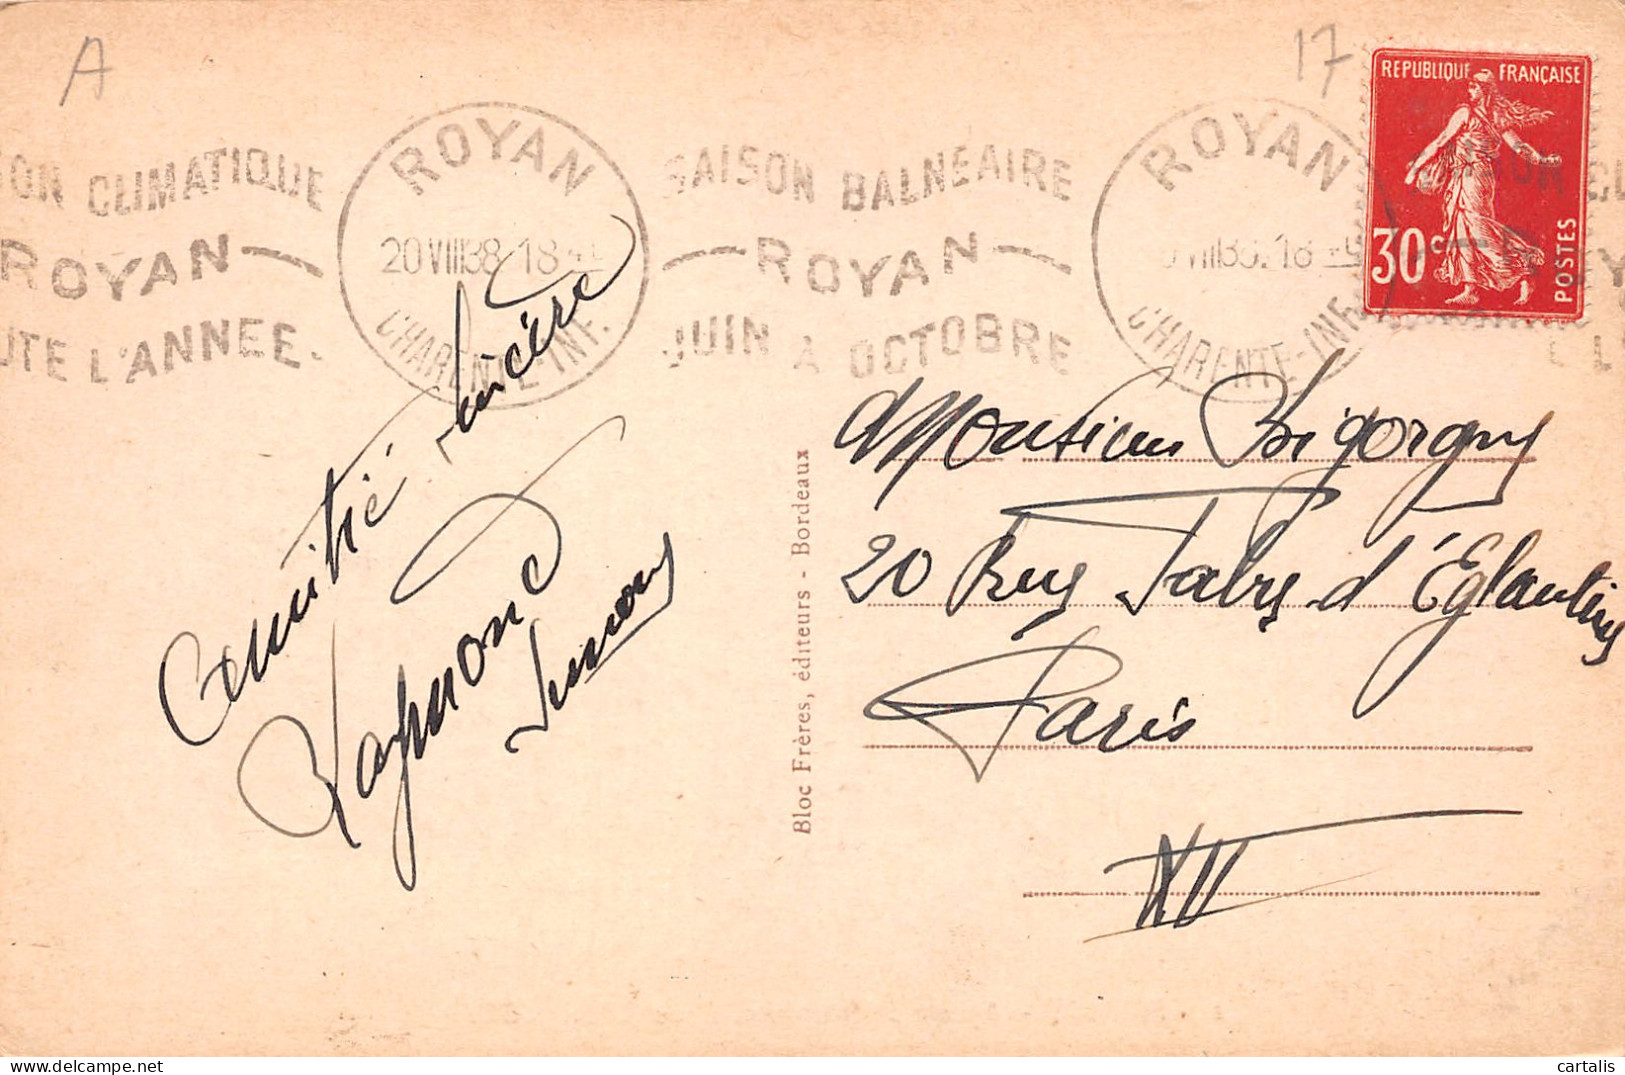 A
17
REPUBLIQUE FRANÇAISE
30c
POSTES
ON CLIMATIQUE
ROYAN
UTE L'ANNEE.
ROYAN
20 VIII 38. 18
CHARENTE-INF.
SAISON BALNEAIRE
ROYAN
JUIN A OCTOBRE
ROYAN
VIII 38. 18
CHARENTE-INF.
Amitié sincère
Raymond
Monsieur Bigorgny
20 Rue Fabre d'Églantine
Paris
XII
Bloc Frères, éditeurs - Bordeaux
cartalis